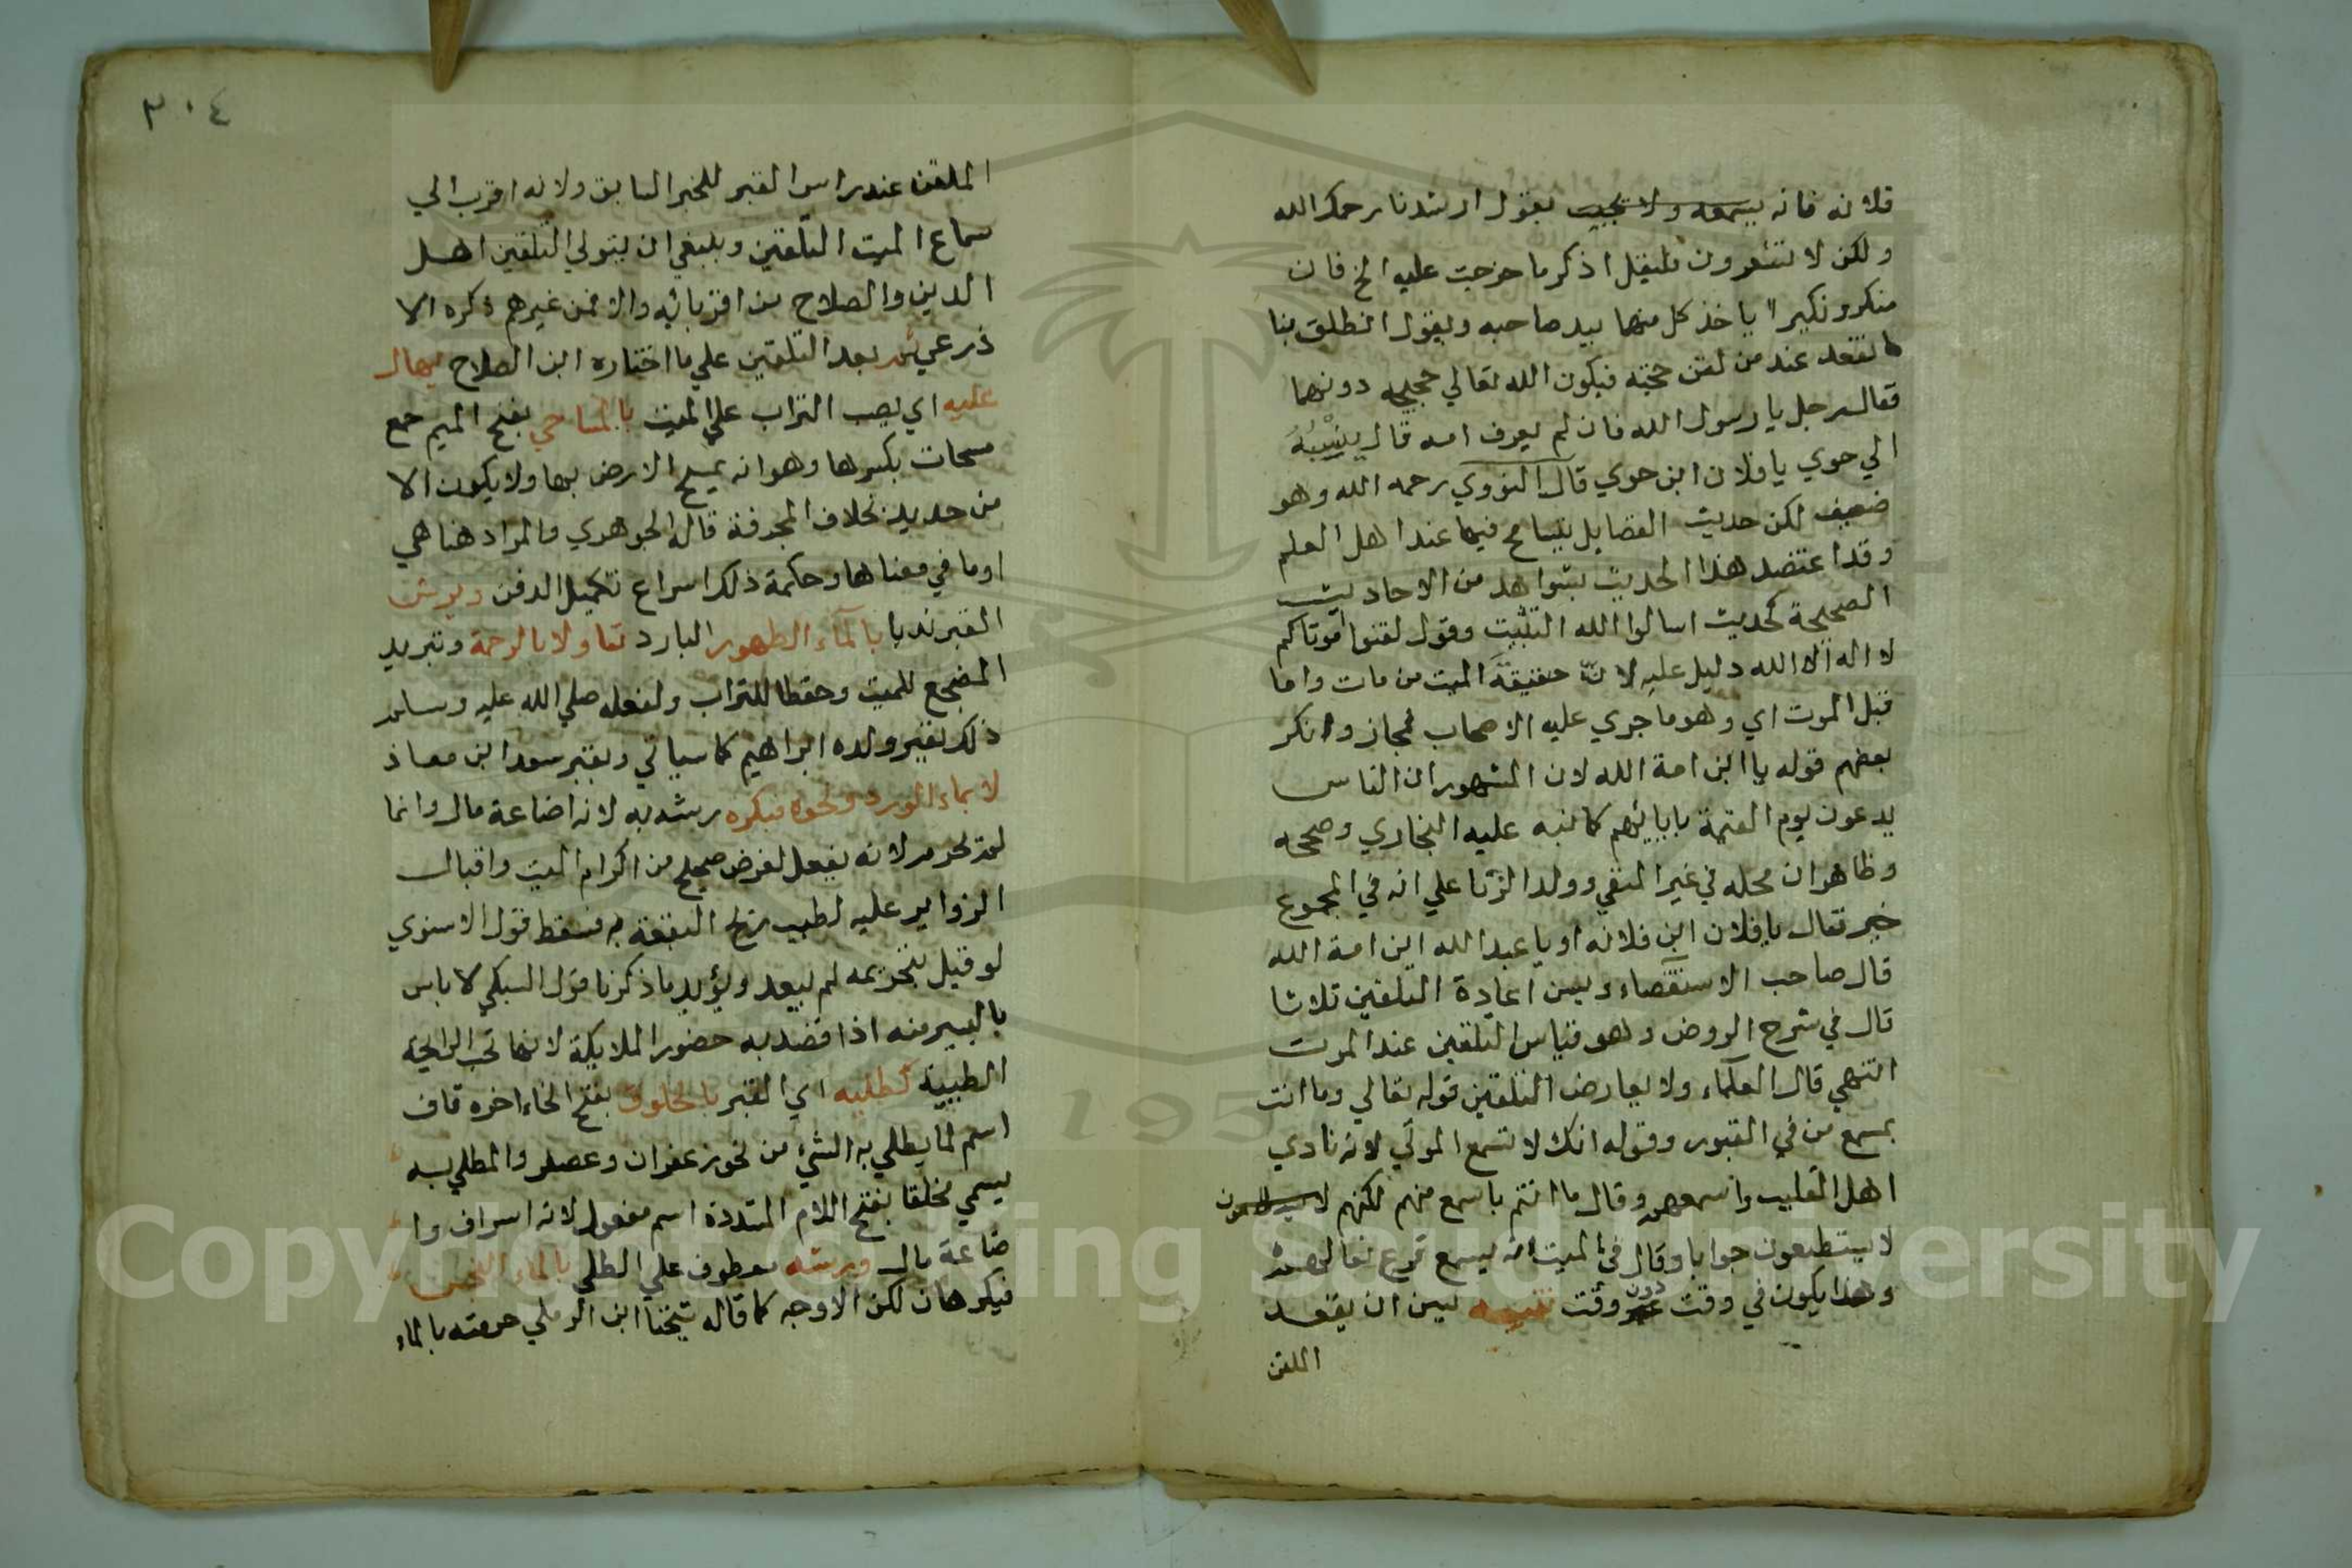 فلانه فانه يسمعه ولا يجيب يقول ارشدنا رحمك الله
ولكن لا تشعرون فليقل اذكر ما خرجت عليه الخ فان
منكر ونكيرا ياخذ كل منهما بيد صاحبه ويقول انطلق بنا
ما نقعد عند من لقن حجته فيكون الله تعالي حجيجه دونهما
فقال رجل يا رسول الله فان لم يعرف امه قال ينسبه
الي حوي يا فلان ابن حوي قال النووي رحمه الله وهو
ضعيف لكن حديث الفضايل يتسامح فيها عند اهل العلم
وقد اعتضد هذا الحديث بشواهد من الاحاديث
الصحيحة كحديث اسالوا الله التثبيت وقول لقنوا موتاكم
لا اله الا الله دليل عليه لان حقيقة الميت من مات واما
قبل الموت اي وهو ما جري عليه الاصحاب فمجاز وانكر
بعضهم قوله يا ابن امة الله لان المشهور ان الناس
يدعون يوم القيمة بابايهم كما نبه عليه البخاري وصححه
وظاهر ان محله في غير المنفي وولد الزنا علي انه في المجموع
خير فقال يا فلان ابن فلانه او يا عبد الله ابن امة الله
قال صاحب الاستقصاء ويسن اعادة التلقين ثلاثا
قال في شرح الروض وهو قياس التلقين عند الموت
انتهي قال العلماء ولا يعارض التلقين قوله تعالي وما انت
بمسمع من في القبور وقوله انك لا تسمع الموتي لانه نادي
اهل القليب واسمعهم وقال ما انتم باسمع منهم لكنهم
لا يستطيعون جوابا وقال في الميت انه يسمع قرع نعالهم
وهذا يكون في وقت دون وقت تنبيه يسن ان يقعد
الملقن
٣٠٤
الملقن عند راس القبر للخبر السابق ولانه اقرب الي
سماع الميت التلقين وينبغي ان يتولي التلقين اهل
الدين والصلاح من اقربائه والا فمن غيرهم ذكره الا
ذرعي ثم بعد التلقين علي ما اختاره ابن الصلاح يهال
عليه اي يصب التراب علي الميت بالمساحي بفتح الميم جمع
مسحات بكسرها وهو انه يمسح الارض بها ولا يكون الا
من حديد بخلاف المجرفة قاله الجوهري والمراد هنا هي
او ما في معناها وحكمة ذلك اسراع تكميل الدفن ويرش
القبر ندبا بالماء الطهور البارد تفاولا بالرحمة وتبريد
المضجع للميت وحفظا للتراب ولفعله صلي الله عليه وسلم
ذلك بقبر ولده ابراهيم كما سياتي وبقبر سعد ابن معاذ
لا بماء الورد ونحوه فيكره رشه به لانه اضاعة مال وانما
لم يحرم لانه يفعل لغرض صحيح من اكرام الميت واقبال
الزوار عليه لطيب ريح البقعة به فسقط قول الاسنوي
لو قيل بتحريمه لم يبعد ويؤيد ما ذكرنا قول السبكي لا باس
باليسير منه اذا قصد به حضور الملايكة لانها تحب الرايحة
الطيبة كطليه اي القبر بالخلوق بفتح الخاء اخره قاف
اسم لما يطلي به الشيء من نحو زعفران وعصفر والمطلي به
يسمي مخلقا بفتح اللام المشددة اسم مفعول لانه اسراف وا
ضاعة مال ورشه معطوف علي الطلي بالماء النجس
فيكرهان لكن الاوجه كما قاله شيخنا ابن الرملي حرمته بالماء
Copyright © King Saud University
195